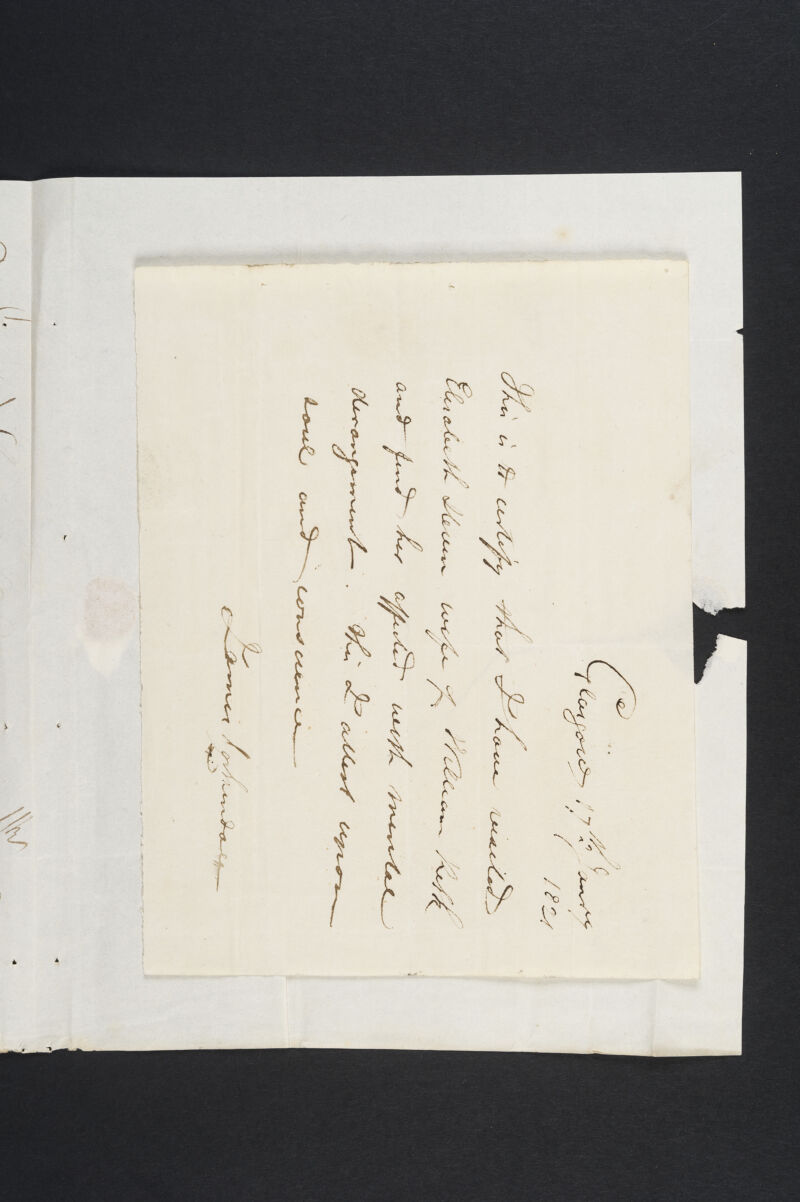 Glasgow 17th Janry
1821
This is to certify that I have visited
Elisabeth Steven wife of William Keith
and find her affected with mental
derangement. This I attest upon
soul and conscience
James